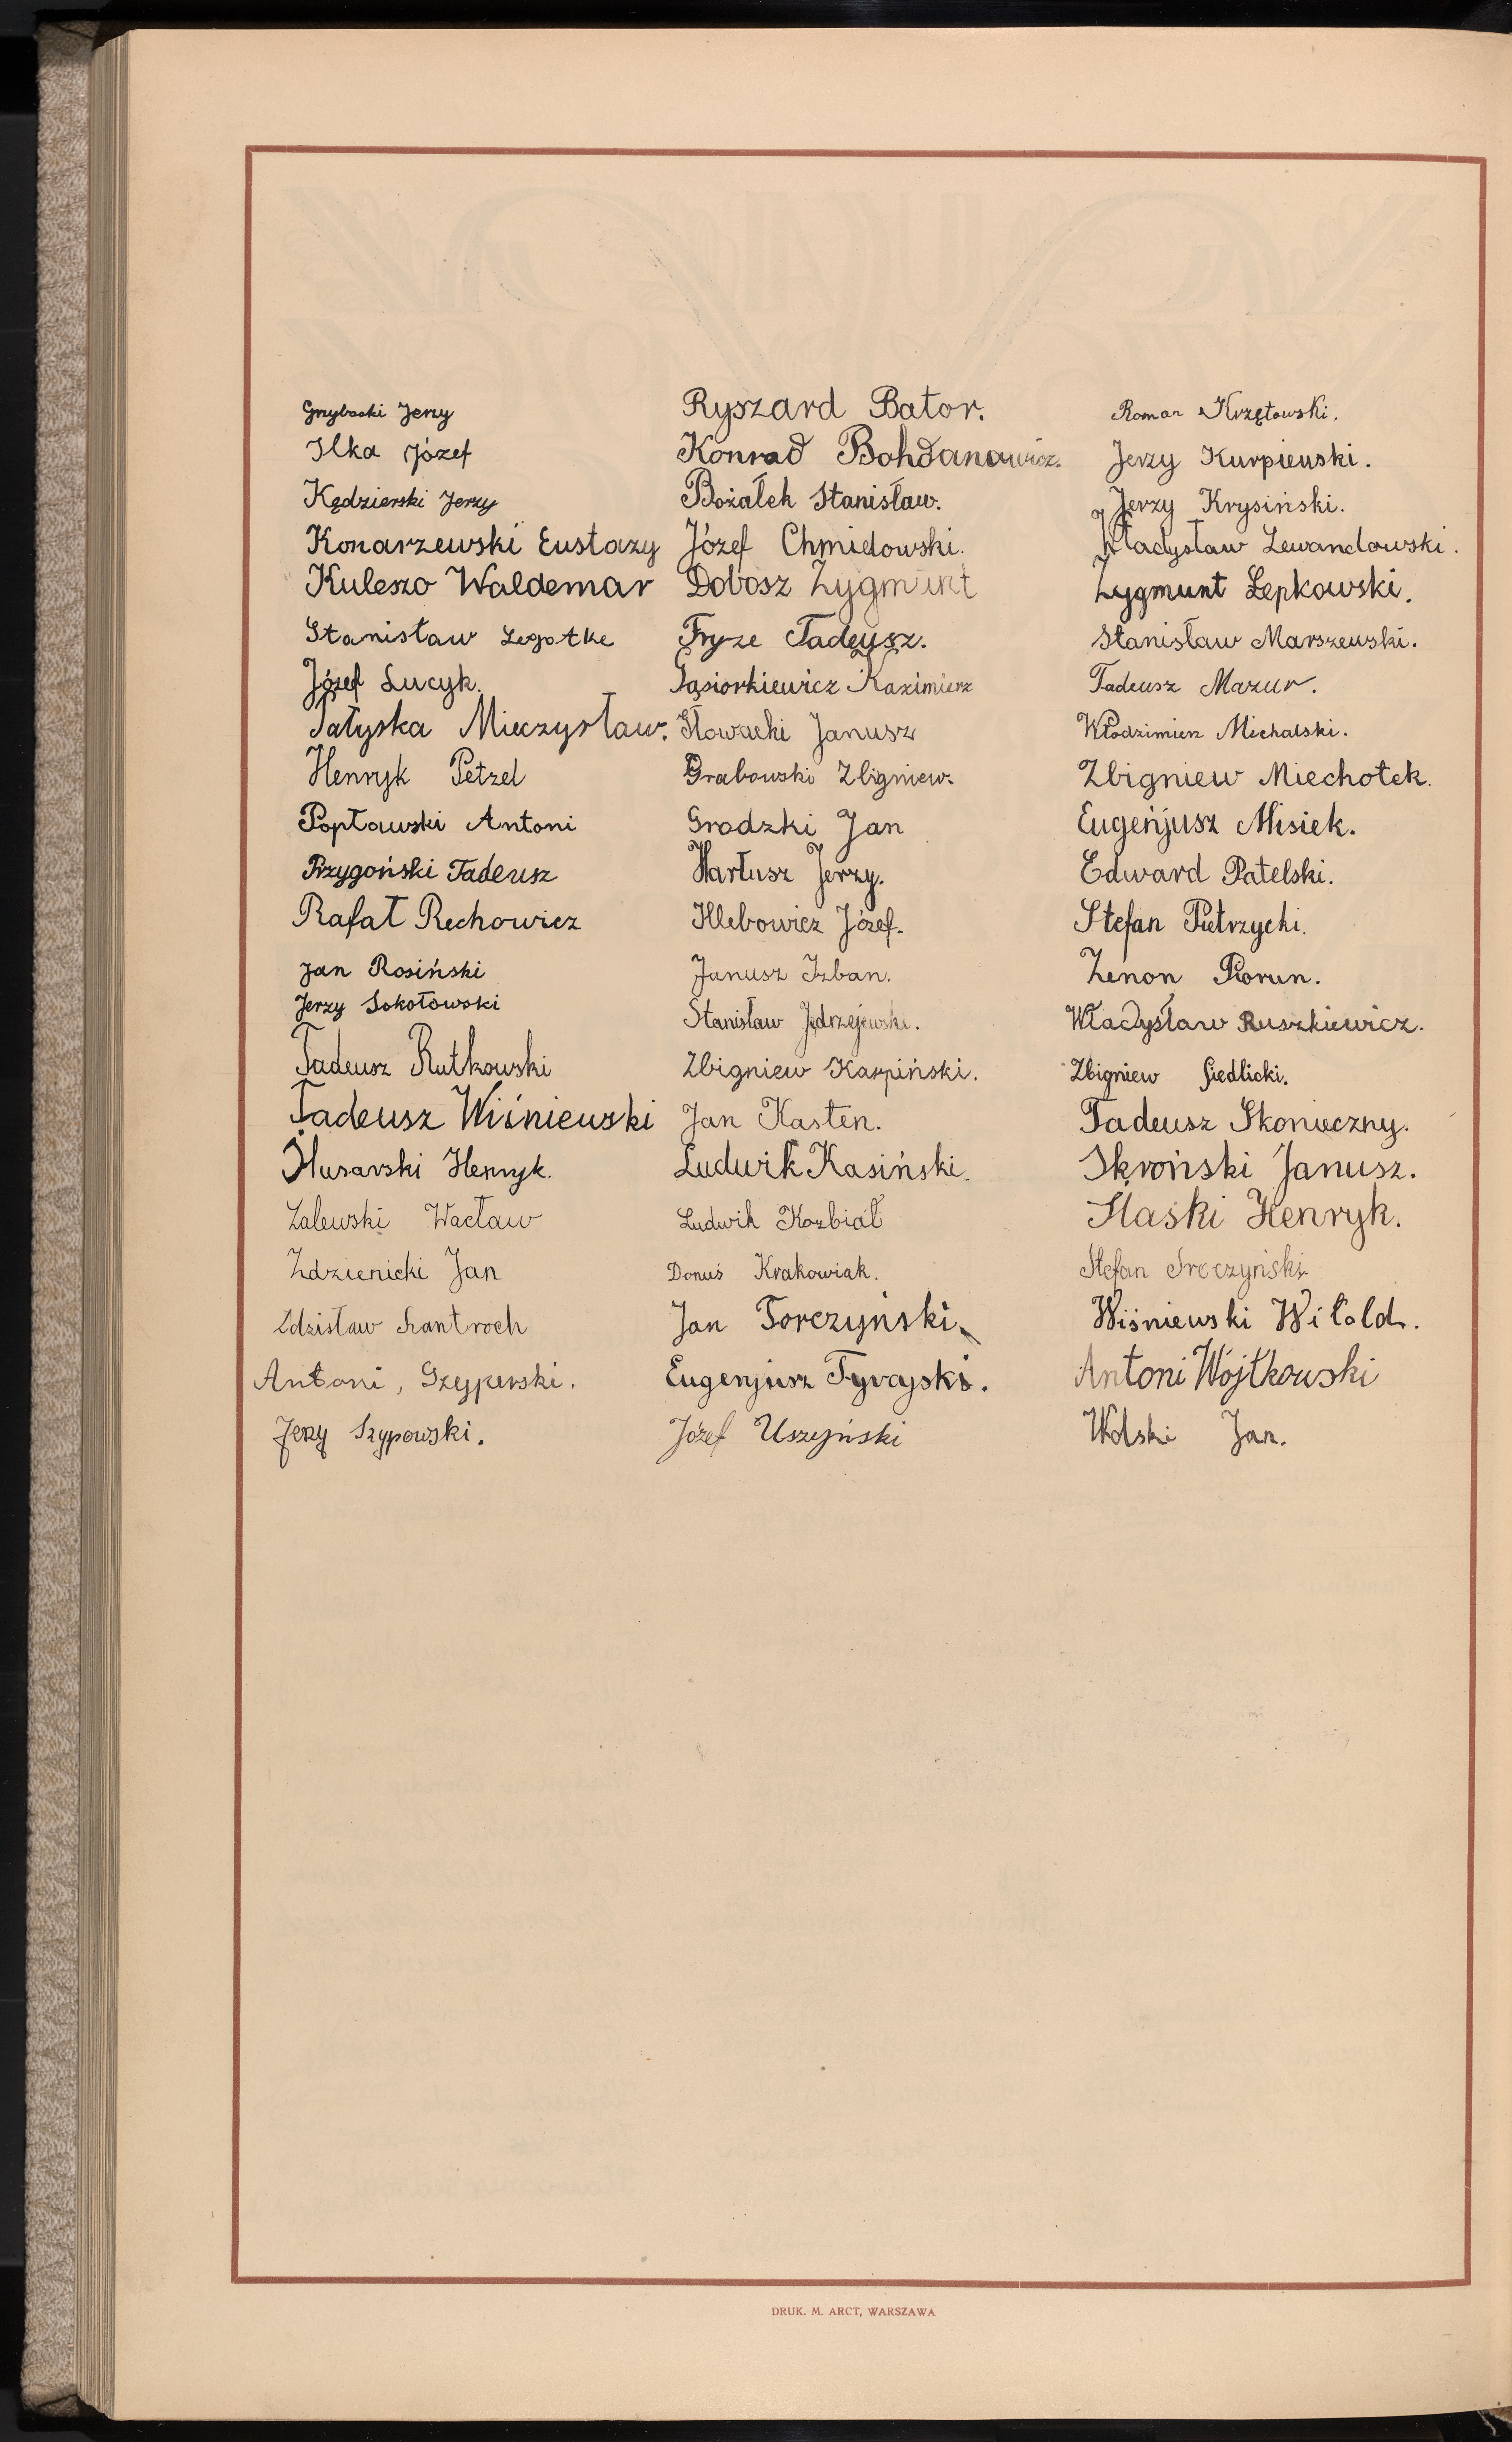 Grzybacki Jerzy
Ilka Józef
Kędzierski Jerzy
Konarzewski Eustazy
Kuleszo Waldemar
Stanisław Legotke
Józef Lucyk.
Pałyska Mieczysław.
Henryk Petzel
Popławski Antoni
Przygoński Tadeusz
Rafał Rechowicz
Jan Rosiński
Jerzy Sokołowski
Tadeusz Rutkowski
Tadeusz Wiśniewski
Ślusarski Henryk.
Zalewski Wacław
Zdzienicki Jan
Zdzisław Szantroch
Antoni, Szyperski.
Jerzy Szypowski.
Ryszard Bator.
Konrad Bohdanowicz.
Bożałek Stanisław.
Józef Chmielowski.
Dobosz Zygmunt
Fryze Tadeusz.
Gąsiorkiewicz Kazimierz
Głowacki Janusz
Grabowski Zbigniew.
Grodzki Jan
Hartusz Jerzy.
Hlebowicz Józef.
Janusz Izban.
Stanisław Jędrzejewski.
Zbigniew Karpiński.
Jan Kasten.
Ludwik Kasiński.
Ludwik Kozbiał
Donuś Krakowiak.
Jan Torczyński
Eugenjusz Tyrajski.
Józef Uszyński
Roman Krzętowski.
Jerzy Kurpiewski.
Jerzy Krysiński.
Władysław Lewandowski.
Zygmunt Łepkowski.
Stanisław Marszewski.
Tadeusz Mazur.
Włodzimierz Michalski.
Zbigniew Miechotek.
Eugenjusz Misiek.
Edward Patelski.
Stefan Pietrzycki.
Zenon Piorun.
Władysław Ruszkiewicz.
Zbigniew Siedlicki.
Tadeusz Skonieczny.
Skroński Janusz.
Slaski Henryk.
Stefan Sroczyński
Wiśniewski Witold.
Antoni Wójtkowski
Wolski Jan.
DRUK. M. ARCT, WARSZAWA